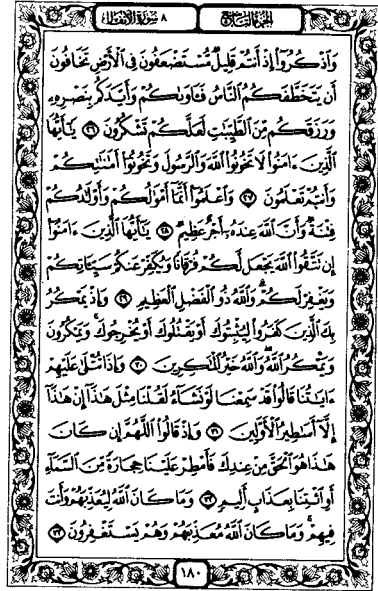 الجزء التاسع
٨ سورة الأنفال
وَاذْكُرُوا إِذْ أَنتُمْ قَلِيلٌ مُّسْتَضْعَفُونَ فِي الْأَرْضِ تَخَافُونَ
أَن يَتَخَطَّفَكُمُ النَّاسُ فَـَٔاوَىٰكُمْ وَأَيَّدَكُم بِنَصْرِهِۦ
وَرَزَقَكُم مِّنَ الطَّيِّبَٰتِ لَعَلَّكُمْ تَشْكُرُونَ ٢٦ يَٰٓأَيُّهَا
الَّذِينَ ءَامَنُوا لَا تَخُونُوا اللَّهَ وَالرَّسُولَ وَتَخُونُوٓا أَمَٰنَٰتِكُمْ
وَأَنتُمْ تَعْلَمُونَ ٢٧ وَاعْلَمُوٓا أَنَّمَآ أَمْوَٰلُكُمْ وَأَوْلَٰدُكُمْ
فِتْنَةٌ وَأَنَّ اللَّهَ عِندَهُۥٓ أَجْرٌ عَظِيمٌ ٢٨ يَٰٓأَيُّهَا الَّذِينَ ءَامَنُوٓا
إِن تَتَّقُوا اللَّهَ يَجْعَل لَّكُمْ فُرْقَانًا وَيُكَفِّرْ عَنكُمْ سَيِّـَٔاتِكُمْ
وَيَغْفِرْ لَكُمْ وَاللَّهُ ذُو الْفَضْلِ الْعَظِيمِ ٢٩ وَإِذْ يَمْكُرُ
بِكَ الَّذِينَ كَفَرُوا لِيُثْبِتُوكَ أَوْ يَقْتُلُوكَ أَوْ يُخْرِجُوكَ ۚ وَيَمْكُرُونَ
وَيَمْكُرُ اللَّهُ وَاللَّهُ خَيْرُ الْمَٰكِرِينَ ٣٠ وَإِذَا تُتْلَىٰ عَلَيْهِمْ
ءَايَٰتُنَا قَالُوا قَدْ سَمِعْنَا لَوْ نَشَآءُ لَقُلْنَا مِثْلَ هَٰذَآ إِنْ هَٰذَآ
إِلَّآ أَسَٰطِيرُ الْأَوَّلِينَ ٣١ وَإِذْ قَالُوا اللَّهُمَّ إِن كَانَ
هَٰذَا هُوَ الْحَقَّ مِنْ عِندِكَ فَأَمْطِرْ عَلَيْنَا حِجَارَةً مِّنَ السَّمَآءِ
أَوِ ائْتِنَا بِعَذَابٍ أَلِيمٍ ٣٢ وَمَا كَانَ اللَّهُ لِيُعَذِّبَهُمْ وَأَنتَ
فِيهِمْ ۚ وَمَا كَانَ اللَّهُ مُعَذِّبَهُمْ وَهُمْ يَسْتَغْفِرُونَ ٣٣
١٨٠